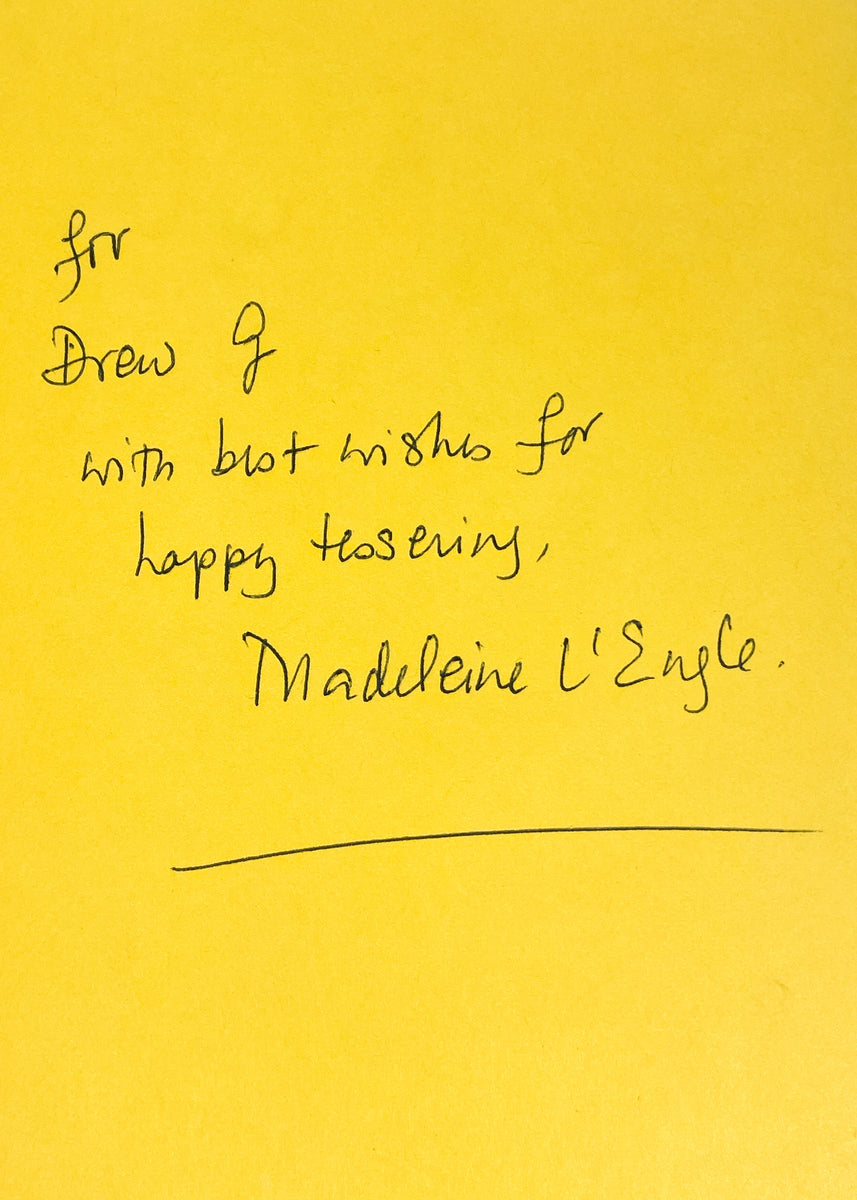 for
Drew G
with best wishes for
happy tessering,
Madeleine L'Engle.